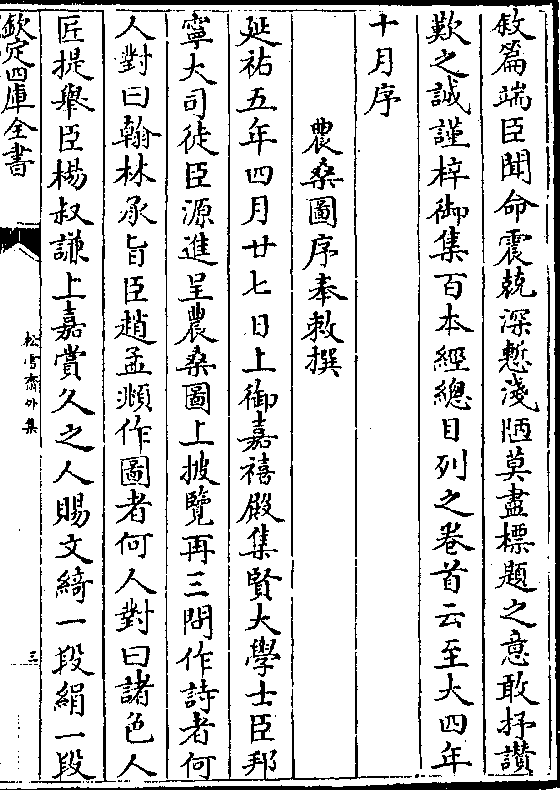 敘篇端臣聞命震兢深慙淺陋莫盡標題之意敢抒讃
歎之誠謹梓御集百本經總目列之卷首云至大四年
十月序
農桑圖序奉敕撰
延祐五年四月廿七日上御嘉禧殿集賢大學士臣邦
寧大司徒臣源進呈農桑圖上披覽再三問作詩者何
人對曰翰林承旨臣趙孟頫作圖者何人對曰諸色人
匠提舉臣楊叔謙上嘉賞久之人賜文綺一段絹一段
欽定四庫全書
松雪齋外集
三